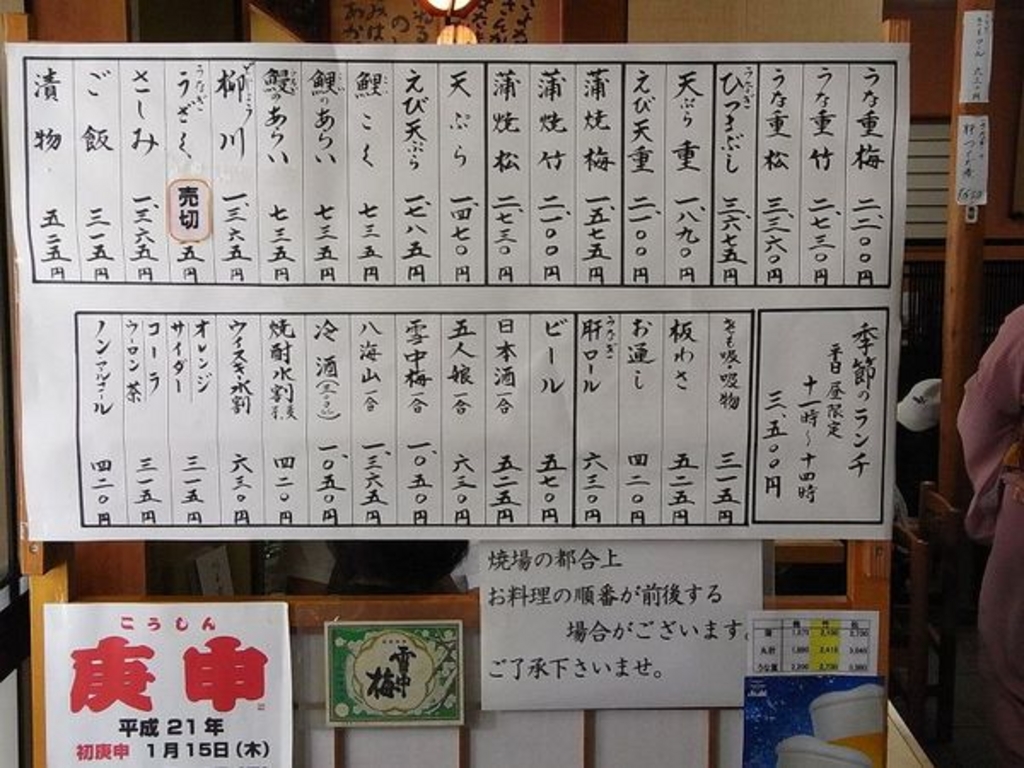 うな重梅 二、一〇〇円
うな重竹 二、七三〇円
うな重松 三、三六〇円
ひつまぶし 三、六七五円
天ぷら重 一、八九〇円
えび天重 二、一〇〇円
蒲焼梅 一、五七五円
蒲焼竹 二、一〇〇円
蒲焼松 二、七三〇円
天ぷら 一、四七〇円
えび天ぷら 一、七八五円
鯉こく 七三五円
鯉のあらい 七三五円
鰻のあらい 七三五円
柳川 一、三六五円
うざく 売切 五円
さしみ 一、三六五円
ご飯 三一五円
漬物 五二五円
季節のランチ
平日 昼限定
十一時～十四時
三、五〇〇円
きも吸・吸物 三一五円
板わさ 五二五円
お通し 四二〇円
肝ロール 六三〇円
ビール 五七〇円
日本酒 一合 五二五円
五人娘 一合 六三〇円
雪中梅 一合 一、〇五〇円
八海山 一合 一、三六五円
冷酒 一、〇五〇円
焼酎水割 四二〇円
ウイスキー水割 六三〇円
オレンジ
サイダー 三一五円
コーラ
ウーロン茶 三一五円
ノンアルコール 四二〇円
焼場の都合上
お料理の順番が前後する
場合がございます。
ご了承下さいませ。
こうしん
庚申
平成21年
初庚申 1月15日(木)
雪中梅
Asahi